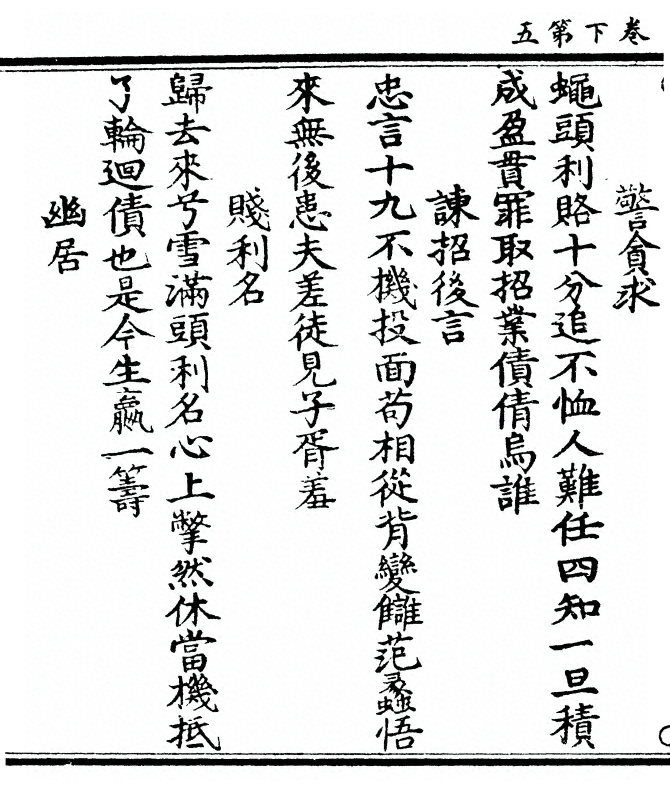 卷下第五
警貪求
蠅頭利賂十分追不恤人難任四知一旦積
成盈貫罪取招業債倩烏誰
諫招後言
忠言十九不機投面苟相從背變讎范蠡悟
來無後患夫差徒見子胥羞
賤利名
歸去來兮雪滿頭利名心上撆然休當機抵
了輪迴債也是今生贏一籌
幽居